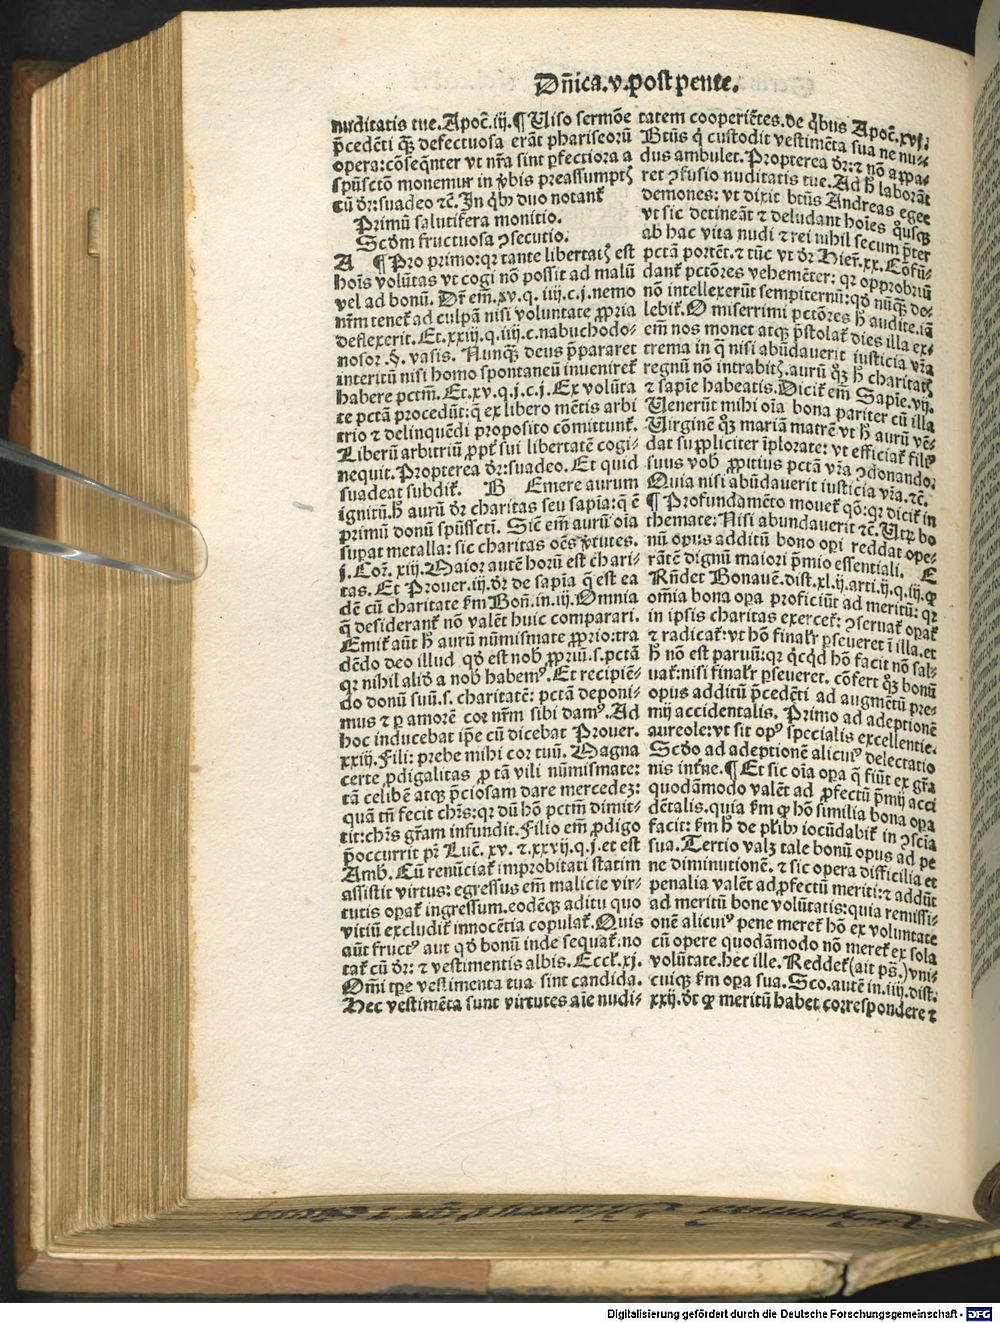 Dñica.v.post pente.
nuditatis tue. Apoč. iij. ¶ Uiso sermõe
p̄cedẽti qȝ defectuosa erãt phariseorũ
opera: cõseqñter vt nr̃a sint ꝑfectiora a
spũsctõ monemur in v̾bis preassumptꝭ
cũ dr̃: suadeo ⁊č. In qĩbꝰ duo notant᷑
Primũ salutifera monitio.
Scđm fructuosa ꝯsecutio.
A ¶ Pro primo: qꝛ tante libertatꝭ est
hoĩs volũtas vt cogi nõ possit ad malũ
vel ad bonũ. Dr̃ em̃. xv. q. iiij. c. j. nemo
nr̃m tenet᷑ ad culpã nisi voluntate ꝓpria
deflexerit. Et. xxiij. q. iiij. c. nabuchodo⸗
nosor. §. vasis. Nunqȝ deus p̄pararet
interitũ nisi homo spontaneũ inueniret᷑
habere pctm̃. Et. xv. q. j. c. j. Ex volũta
te pctã procedũt: q̃ ex libero mẽtis arbi
trio ⁊ delinquẽdi proposito cõmittunt᷑.
Liberũ arbitriũ ꝓpt̾ sui libertatẽ cogi⸗
nequit. Propterea dr̃: suadeo. Et quid
suadeat subdit᷑. B Emere aurum
ignitũ. h̃ aurũ dr̃ charitas seu sapĩa: q̃ ẽ
primũ donũ spũssctĩ. Sič em̃ aurũ oĩa
suꝑat metalla: sic charitas oẽs v̾tutes.
j. Coꝝ. xiij. Maior autẽ horũ est chari⸗
tas. Et Prouer. iij. dr̃ de sapĩa q̃ est ea
dẽ cũ charitate ẜm Boñ. in. iij. Omnia
q̃ desiderant᷑ nõ valẽt huic comparari.
Emit᷑ aũt h̃ aurũ nũmismate ꝓprio: tra
dẽdo deo illud qđ est nob̃ ꝓpriũ. s. pctã
qꝛ nihil aliđ a nob̃ habemꝰ. Et recipiẽ⸗
do donũ suũ. s. charitatẽ: pctã deponi⸗
mus ⁊ ꝑ amorẽ cor nr̃m sibi damꝰ. Ad
hoc inducebat ip̃e cũ dicebat Prouer.
xxiij. Fili: prebe mihi cor tuũ. Magna
certe ꝓdigalitas ꝓ tã vili nũmismate:
tã celibẽ atqȝ p̄ciosam dare mercedeȝ:
quã tñ fecit chr̃s: qꝛ dũ hõ pctm̃ dimit⸗
tit: chr̃s gr̃am infundit. Filio em̃ ꝓdigo
p̄occurrit pr̃ Luč. xv. ⁊. xxvij. q. j. et est
Amb̃. Cũ renũciat᷑ improbitati statim
assistit virtus: egressus em̃ malicie vir⸗
tutis opat᷑ ingressum. eodẽqȝ aditu quo
vitiũ excludit᷑ innocẽtia copulat᷑. Quis
aũt fructꝰ aut qđ bonũ inde sequat᷑: no
tat᷑ cũ dr̃: ⁊ vestimentis albis. Eccł. xj.
Om̃i tp̃e vestimenta tua sint candida.
Hec vestimẽta sunt virtutes aĩe nudi⸗
tatem cooperiẽtes. de q̃bus Apoč. xvj.
Btũs q̃ custodit vestimẽta sua ne nu⸗
dus ambulet. Propterea dr̃: ⁊ nõ appa⸗
ret ꝯfusio nuditatis tue. Ad h̃ laborãt
demones: vt dixit btũs Andreas egee
vt sic detineãt ⁊ deludant hoĩes q̊usqȝ
ab hac vita nudi ⁊ rei nihil secum p̄ter
pctã portẽt. ⁊ tũc vt dr̃ Hieř. xx. Cõfũ⸗
dant᷑ pctõres vehemẽter: qꝛ opprobriũ
nõ intellexerũt sempiternũ: qđ nũqȝ do⸗
lebit᷑. O miserrimi pctõres h̃ audite. iã
em̃ nos monet atqȝ p̄stolat᷑ dies illa ex⸗
trema in q̃ nisi abũdauerit iusticia vr̃a
regnũ nõ intrabitꝭ. aurũ qȝ h̃ charitatꝭ
⁊ sapĩe habeatis. Dicit᷑ em̃ Sapĩe. vij.
Uenerũt mihi oĩa bona pariter cũ illa
Uirginẽ qȝ mariã matrẽ vt h̃ aurũ vẽ⸗
dat suppliciter ĩplorate: vt efficiat᷑ filiꝰ
suus vob̃ ꝓpitius pctã vr̃a ꝯdonando.
Quia nisi abũdauerit iusticia vr̃a. ⁊č.
¶ Profundamẽto mouet᷑ qõ: qꝛ dicit᷑ in
themate: Nisi abundauerit ⁊č. Utꝝ bo
nũ opus additũ bono oꝑi reddat ope⸗
rãtẽ dignũ maiori p̄mio essentiali. E
Rñdet Bonauẽ. dist. xl. ij. arti. ij. q. iij. ꝙ
om̃ia bona oꝑa proficiũt ad meritũ: qꝛ
in ipsis charitas exercet᷑: ꝯseruat᷑ opat᷑
⁊ radicat᷑: vt hõ finalr̃ ꝑseueret ĩ illa. et
h̃ nõ est paruũ: qꝛ qͥcqͥd hõ facit nõ sal⸗
uat᷑: nisi finalr̃ ꝑseueret. cõfert qȝ bonũ
opus additũ p̄cedẽti ad augmẽtũ pre⸗
mij accidentalis. Primo ad adeptionẽ
aureole: vt sit opꝰ specialis excellentie.
Scđo ad adeptionẽ alicuiꝰ delectatio
nis int̾ne. ¶ Et sic oĩa oꝑa q̃ fiũt ex gr̃a
quodãmodo valẽt ad ꝓfectũ p̄mij acci
dẽtalis. quia ẜm ꝙ hõ similia bona oꝑa
facit: ẜm h̃ de pl̾ibꝰ iocũdabit᷑ in ꝯsciẽa
sua. Tertio valȝ tale bonũ opus ad pe
ne diminutionẽ. ⁊ sic opera difficilia et
penalia valẽt ad ꝓfectũ meriti: ⁊ addũt
ad meritũ bone volũtatis: quia remissi⸗
onẽ alicuiꝰ pene meret᷑ hõ ex voluntate
cũ opere quodãmodo nõ meret᷑ ex sola
volũtate. hec ille. Reddet᷑ (ait pš.) vni⸗
cuiqȝ ẜm oꝑa sua. Sco. autẽ in. iiij. dist.
xxij. dt ꝙ meritũ habet correspondere ⁊
Digitalisierung gefördert durch die Deutsche Forschungsgemeinschaft - DFG